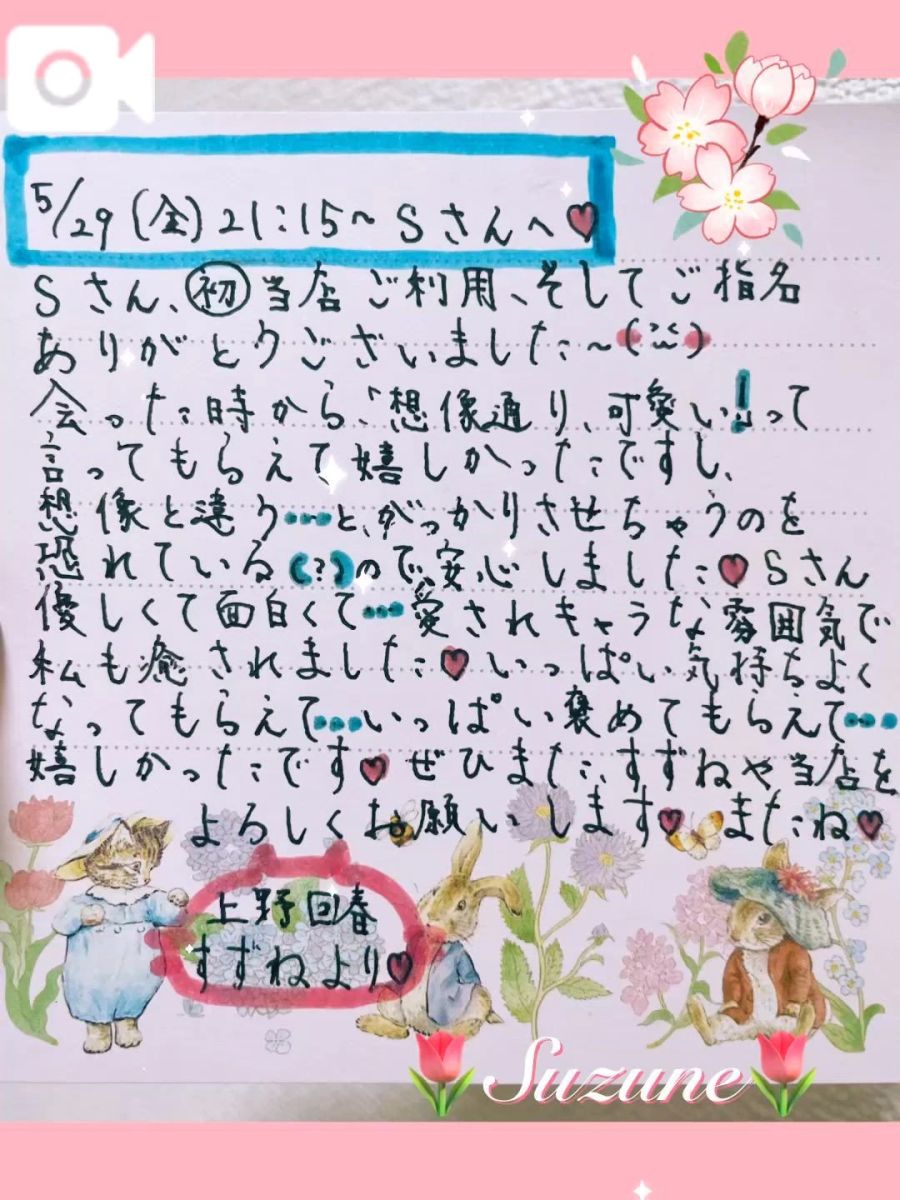 5/29(金)21:15~Sさんへ♥
Sさん、㊞初当店ご利用、そしてご指名
ありがとうございました~(^^)
会った時から、「想像通り、可愛い!」って
言ってもらえて嬉しかったですし、
想像と違う…と、がっかりさせちゃうのを
恐れている(?)ので、安心しました♥Sさん
優しくて面白くて…愛されキャラな雰囲気で
私も癒されました♥いっぱい気持ちよく
なってもらえて…いっぱい褒めてもらえて…
嬉しかったです♥ぜひまた、すずねや当店を
よろしくお願いします♥またね♥
上野回春
すずねより♥
Suzune